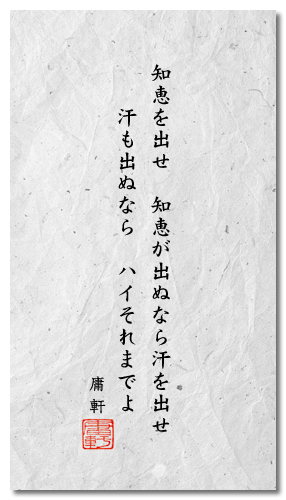 知恵を出せ　知恵が出ぬなら汗を出せ
汗も出ぬなら　ハイそれまでよ
庸軒